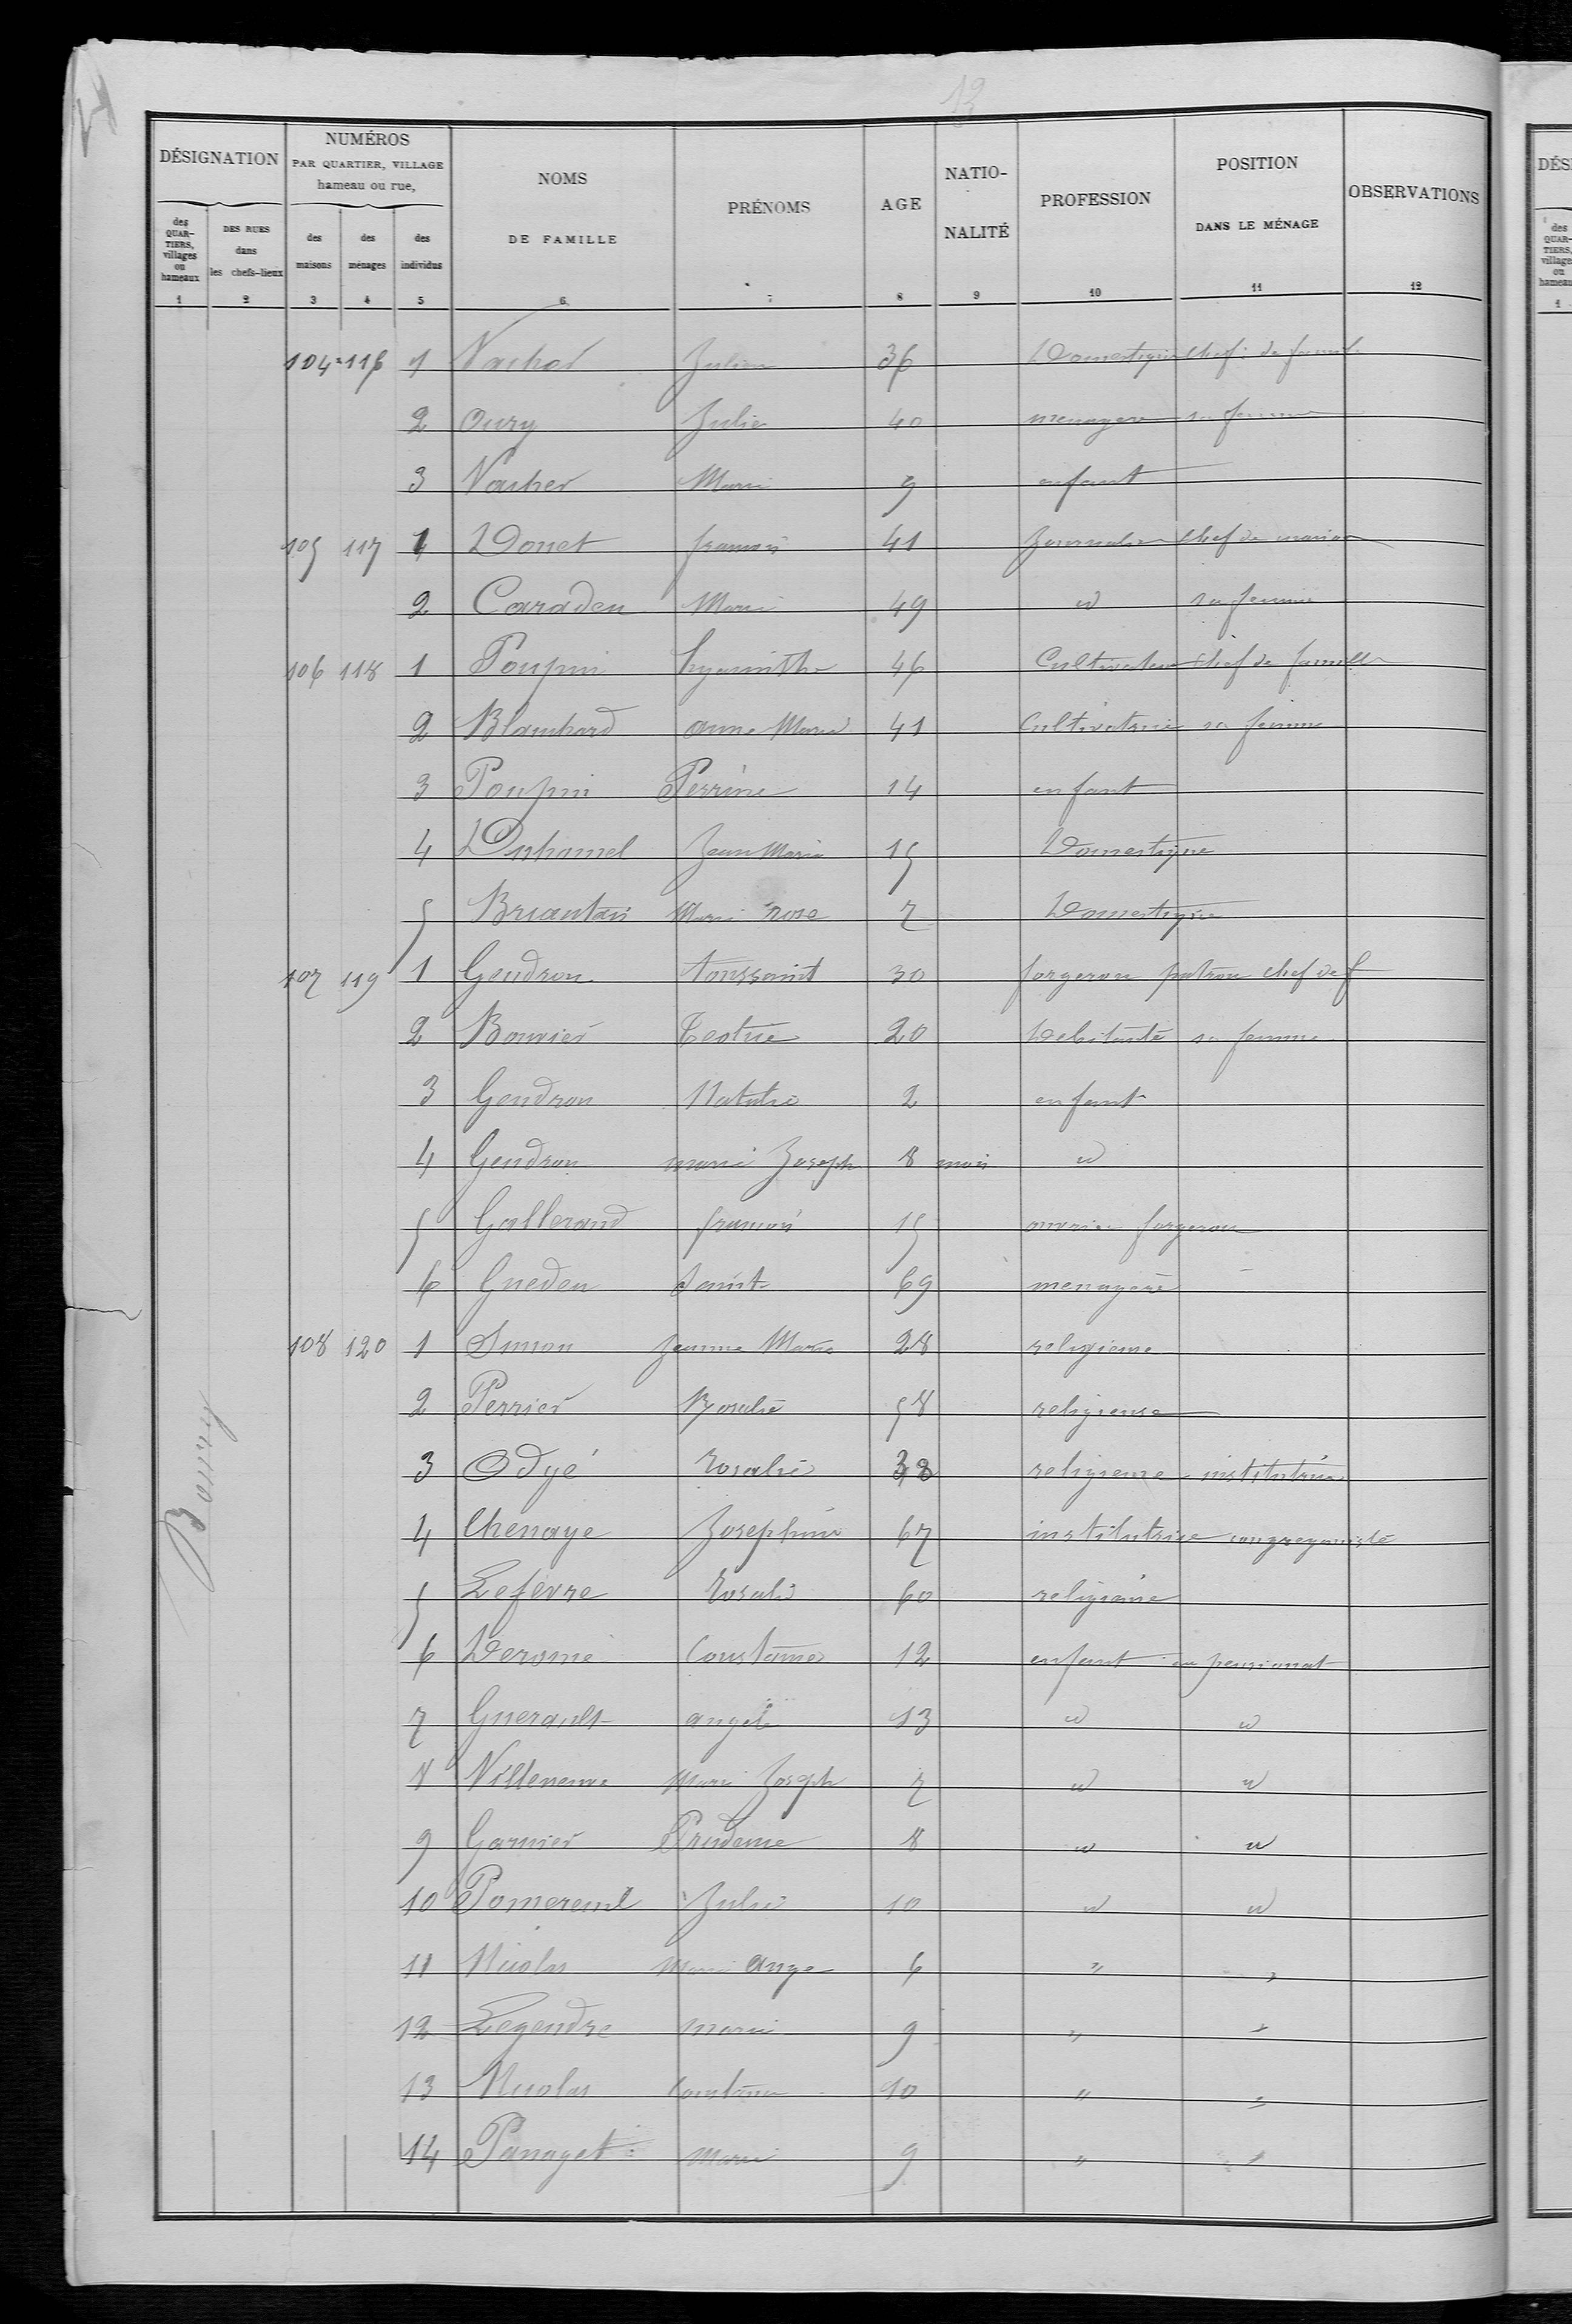 13
DÉSIGNATION
NUMÉROS
PAR QUARTIER, VILLAGE
hameau ou rue,
NOMS
DE FAMILLE
PRÉNOMS
AGE
NATIO-
NALITÉ
PROFESSION
POSITION
DANS LE MÉNAGE
OBSERVATIONS
des QUAR-TIERS, villages ou hameaux
DES RUES dans les chefs-lieux
des maisons
des ménages
des individus
1 2 3 4 5 6 7 8 9 10 11 12
104 116 1 Vacher Julien 36 Domestique chef de famile
2 Oury Julie 40 menagere sa femme
3 Vacher Marie 9 enfant
105 117 1 Donet francois 41 Journalier chef de maison
2 Caradeu Marie 49 id sa femme
106 118 1 Poupin hyacinthe 46 Cultivateur chef de famille
2 Blanchard anne Marie 41 Cultivatrice sa femme
3 Poupin Perrine 14 enfant
4 Duhamel Jean Marie 15 Domestique
5 Briantais Marie rose 7 Domestique
107 119 1 Gendron toussaint 30 forgeron patron chef de f
2 Bouvier 20 Debitante sa femme
3 Gendron Natalie 2 enfant
4 Gendron marie Joseph 8 mois id
5 Gallerand francois 15 ouvrier forgeron
6 Guedeu Sainte 69 menagere
108 120 1 Simon Jeanne Marie 28 religieuse
2 Perrier Rosalie 58 religieuse
3 Odyé rosalie 38 religieuse institutrice
4 Chenaye Josephine 67 institutrice congreganiste
5 Lefevre rosalie 60 religieuse
6 Deromé Constance 12 enfant en pensionat
7 Guerault angele 13 id id
8 Villeneuve Marie Joseph 7 id id
9 Garnier Prudence 8 id id
10 Pomereul Julie 10 id id
11 Nicolas Marie Ange 6 " "
12 Legendre marie 9 " "
13 Nicolas Constance 10 " "
14 Panaget Marie 9 " "
Bourg
DÉS
des QUAR- TIERS, village ou hameau
1